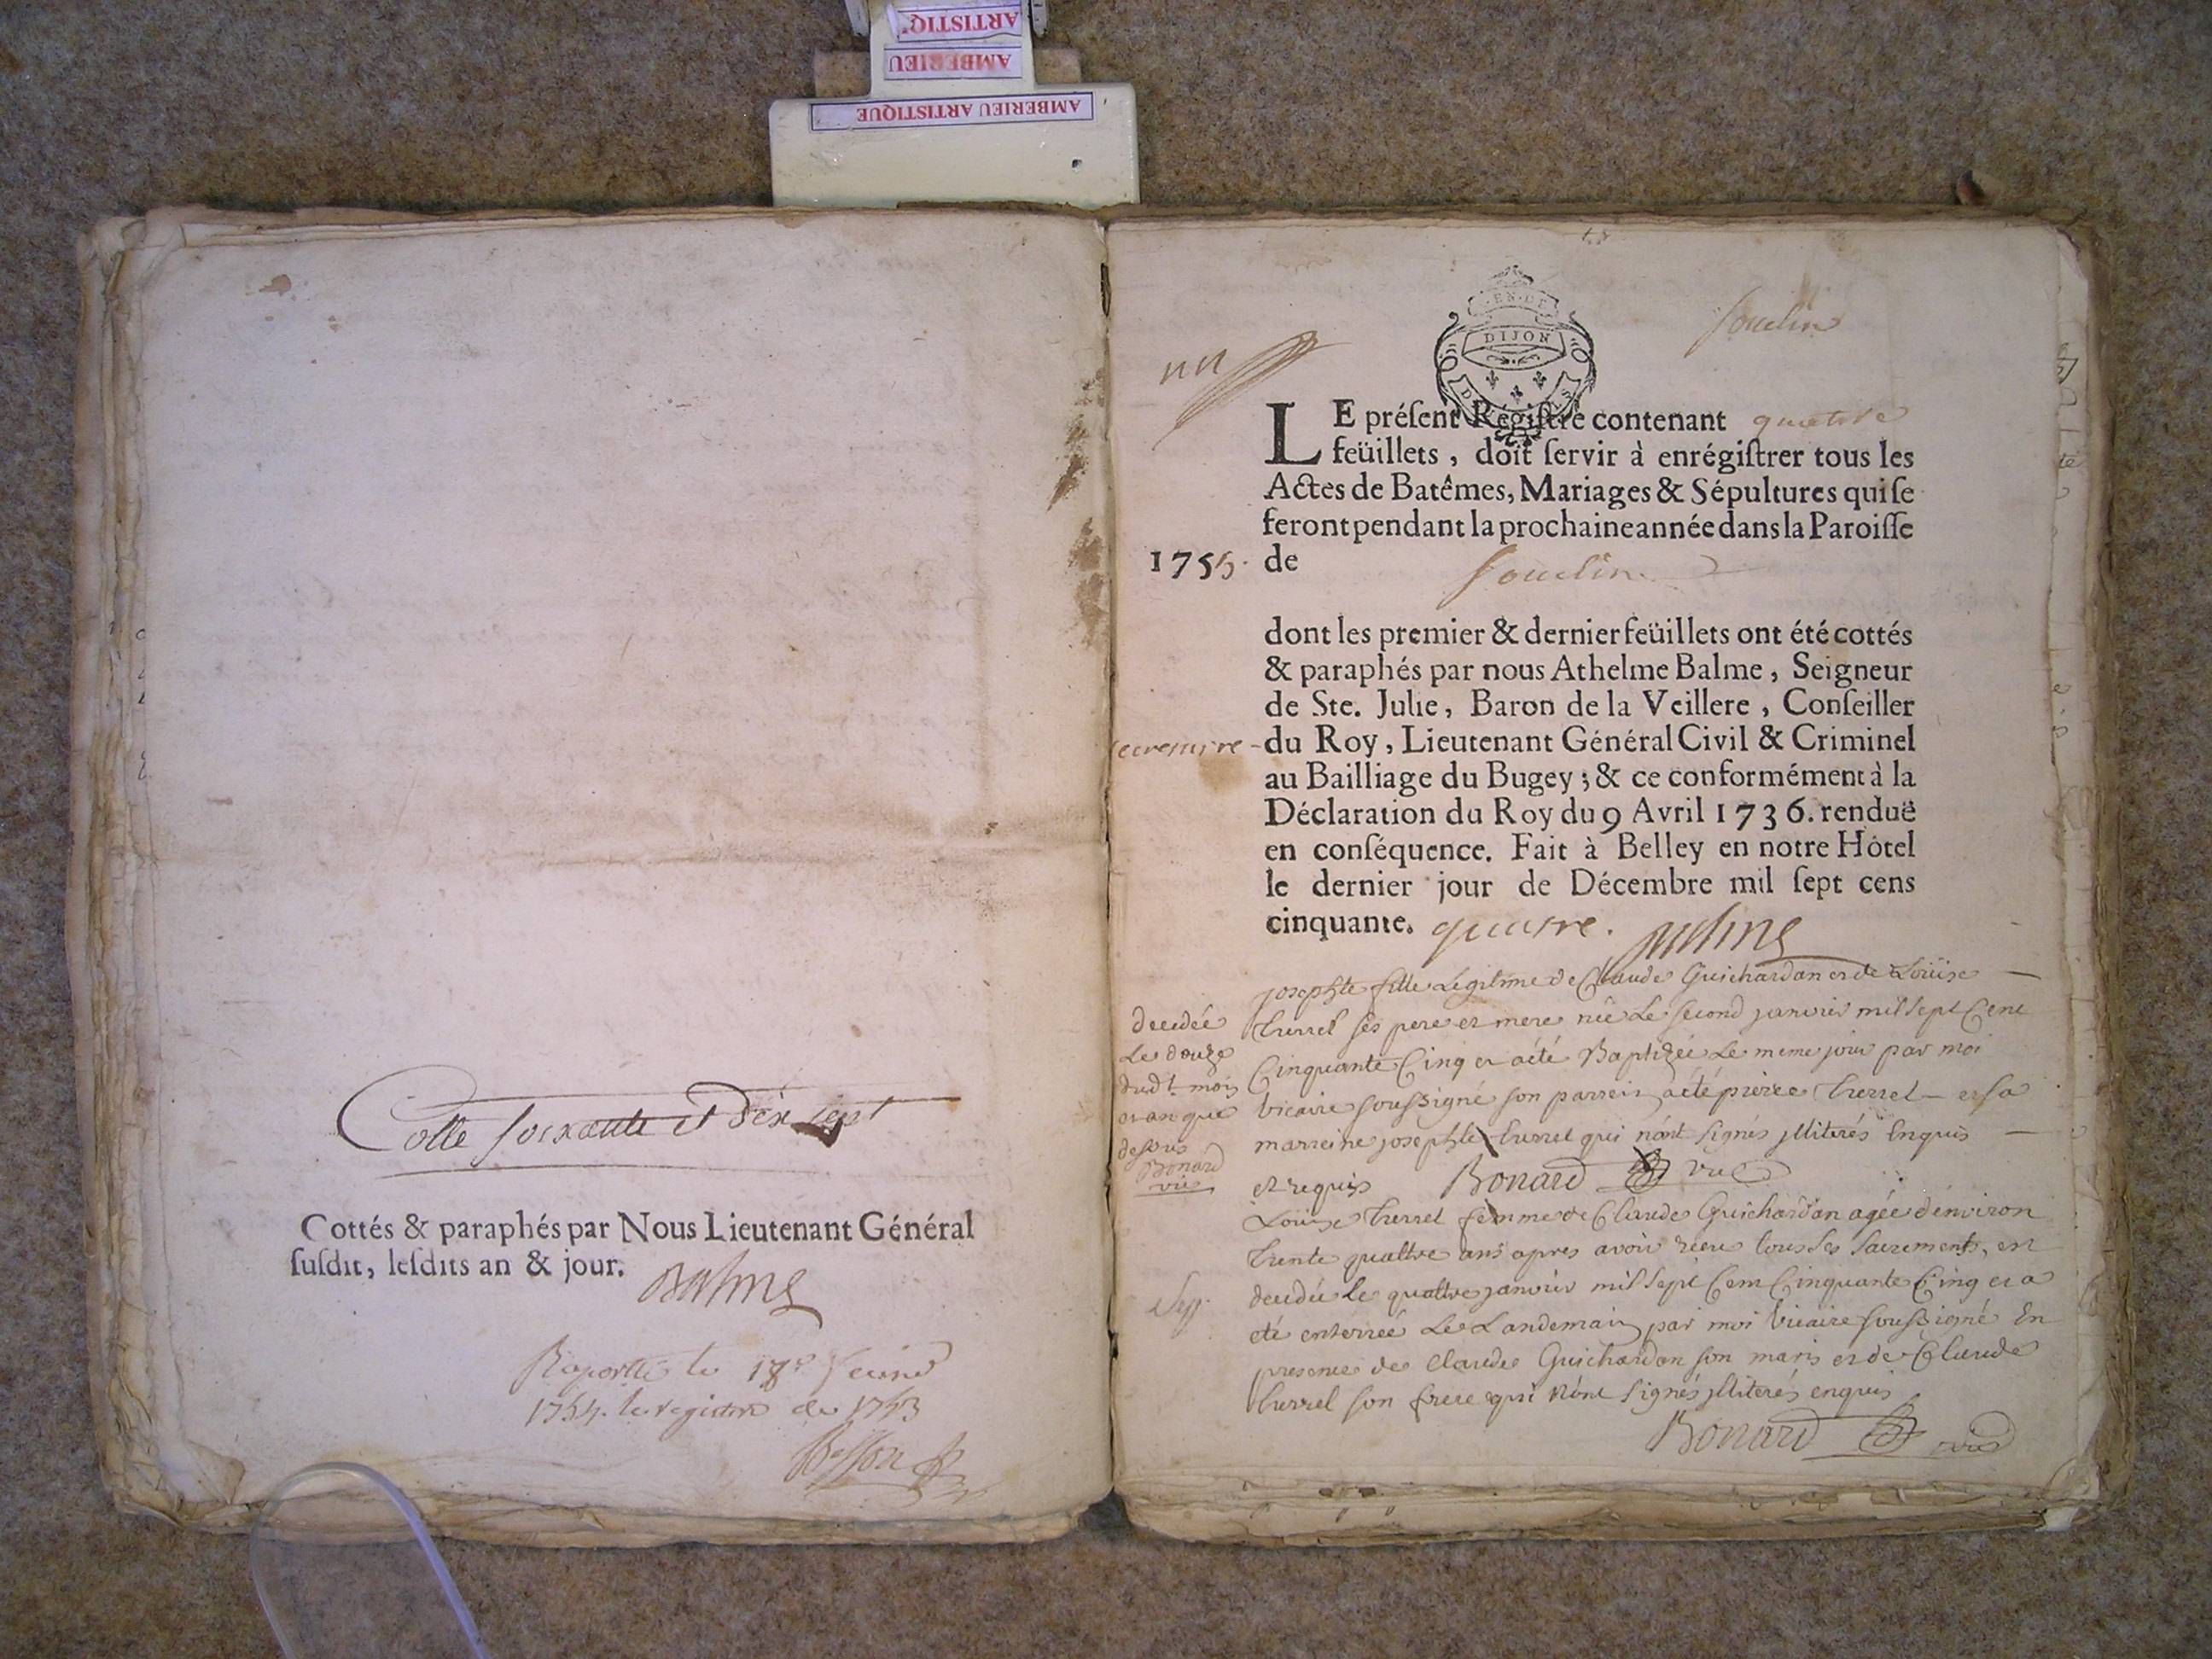 ARTISTIQ
AMBERIEU
AMBERIEU ARTISTIQUE
Cotte soixante et dix sept
Cottés & paraphés par Nous Lieutenant Général
susdit, lesdits an & jour.
Balme
Raporté le 18e
1754. le registre de 1753
Besson
un
EN·CE
DIJON
Souclin
LE préſent Regiſtre contenant quatre
feüillets, doit ſervir à enrégiſtrer tous les
Actes de Batêmes, Mariages & Sépultures qui ſe
feront pendant la prochaine année dans la Paroiſſe
1755. de Souclin
dont les premier & dernier feüillets ont été cottés
& paraphés par nous Athelme Balme, Seigneur
de Ste. Julie, Baron de la Veillere, Conſeiller
secretaire - du Roy, Lieutenant Général Civil & Criminel
au Bailliage du Bugey; & ce conformément à la
Déclaration du Roy du 9 Avril 1736. renduë
en conſéquence. Fait à Belley en notre Hôtel
le dernier jour de Décembre mil ſept cens
cinquante. quatre. Balme
josephte fille Légitime de Claude Guichardan et de Loüise
Turrel ses pere et mere née Le second janvier mil sept Cent
Cinquante Cinq et a été Baptizée Le meme jour par moi
Vicaire soussigné son parrein a été pierre Turrel et sa
marreine josephte Turrel qui n'ont signés jlliterés Enquis
et requis Bonard vic
decedée
Le douze
dud.t mois
et an que
dessus
Bonard
vic
Louise Turrel femme de Claude Guichardan agée d'environ
trente quattre ans apres avoir reçu tous ses sacrements, est
decedée le quattre janvier mil sept Cent Cinquante Cinq et a
eté enterreé Le Landemain par moi Vicaire soussigné En
presence de Claude Guichardan son maris et de Claude
Turrel son frere qui n'ont signés jlliterés enquis
Bonard vic